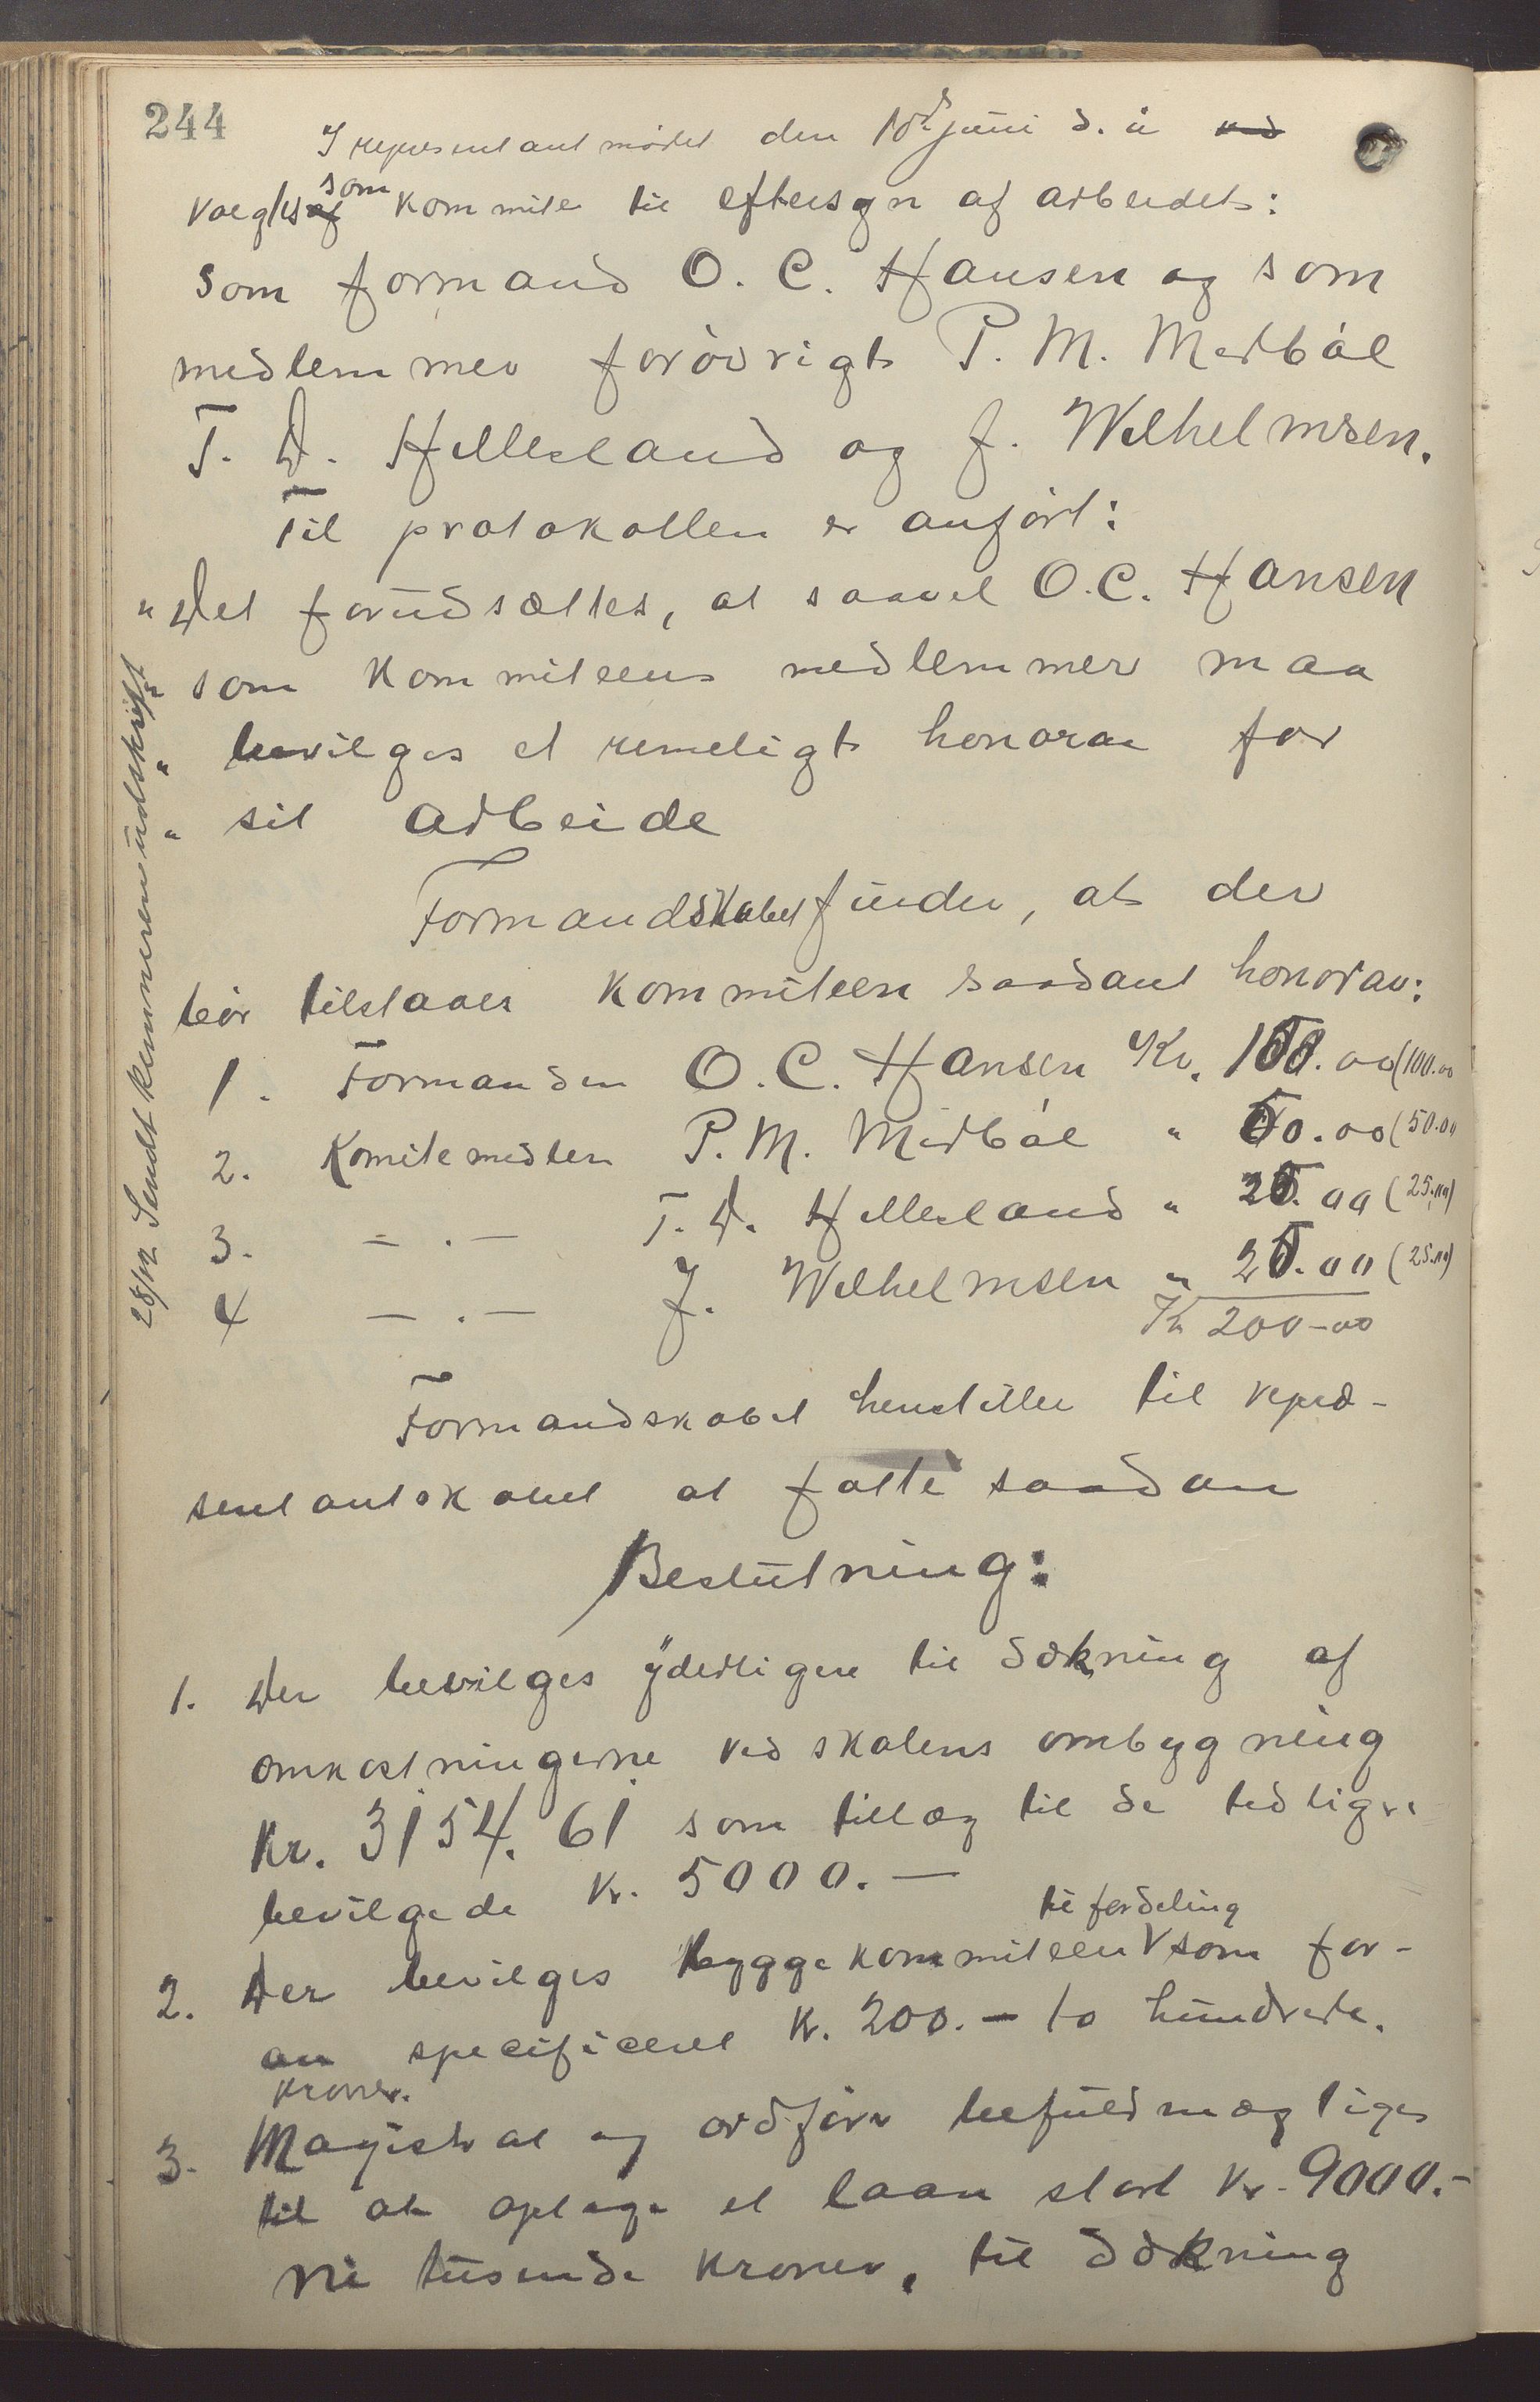 244
I representantmødet den 10de juni d. å ved
valgtes af som kommite til eftersyn af arbeidet:
som formand O. C. Hansen og som
medlemmer forøvrigt P. M. Medbøe
T. D. Hellesland og J. Wilhelmsen.
Til protokollen er anført:
"Det forudsættes, at saavel O.C. Hansen
" som kommiteens medlemmer maa
" bevilges et rimeligt honorar for
" sit arbeide
Formandskabet finder, at der
bør tilstaaes kommiteen saadant honorar:
1. Formanden O. C. Hansen Kr. 100.00 (100.00
2. Komitemedlem P. M. Medbøe " 50.00 (50.00
3. - . - T. D. Hellesland " 25.00 (25.00)
4 - . - J. Wilhelmsen " 25.00 (25.00)
Kr 200-00
Formandskabet henstiller til repræ-
sentantskabet at fatte saadan
Beslutning:
1. Der bevilges yderligere til dækning af
omkostningerne ved skolens ombygning
Kr. 3154.61 som tillæg til de tidligere
bevilgede Kr. 5000.-
til fordeling
2. Der bevilges byggekommiteen V som for-
an specificeret Kr. 200.- to hundrede.
kroner.
3. Magistrat og ordfører befuldmægtiges
til at optage et laan stort Kr. 9000.-
ni tusinde kroner, til dækning
28/12 Sendt kemneren udskrift